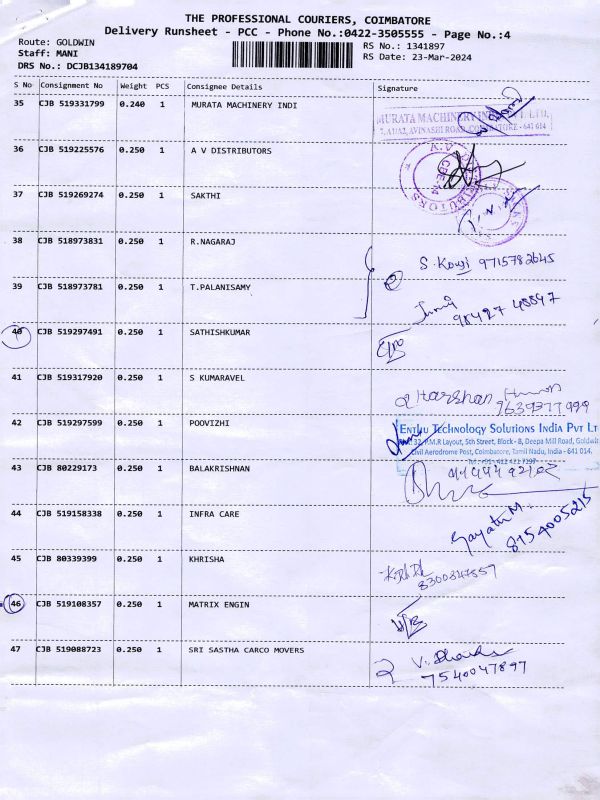 THE PROFESSIONAL COURIERS, COIMBATORE
Delivery Runsheet - PCC - Phone No.:0422-3505555 - Page No.:4
Route: GOLDWIN
Staff: MANI
DRS No.: DCJB134189704
RS No.: 1341897
RS Date: 23-Mar-2024
S No Consignment No Weight PCS Consignee Details Signature
35 CJB 519331799 0.240 1 MURATA MACHINERY INDI
MURATA MACHINERY
AVINASHI ROAD, COIMBATORE - 641 614
36 CJB 519225576 0.250 1 A V DISTRIBUTORS
37 CJB 519269274 0.250 1 SAKTHI
38 CJB 518973831 0.250 1 R.NAGARAJ
S. Kowsi 9715782645
39 CJB 518973781 0.250 1 T.PALANISAMY
98427 48847
40 CJB 519297491 0.250 1 SATHISHKUMAR
41 CJB 519317920 0.250 1 S KUMARAVEL
Harshan
9639377999
42 CJB 519297599 0.250 1 POOVIZHI
Enthu Technology Solutions India Pvt Lt
P.M.R Layout, 5th Street, Block - B, Deepa Mill Road, Goldwi
Civil Aerodrome Post, Coimbatore, Tamil Nadu, India - 641 014.
43 CJB 80229173 0.250 1 BALAKRISHNAN
44 CJB 519158338 0.250 1 INFRA CARE
Gayathri M.
8754005215
45 CJB 80339399 0.250 1 KHRISHA
8300347557
46 CJB 519108357 0.250 1 MATRIX ENGIN
47 CJB 519088723 0.250 1 SRI SASTHA CARCO MOVERS
7540047897